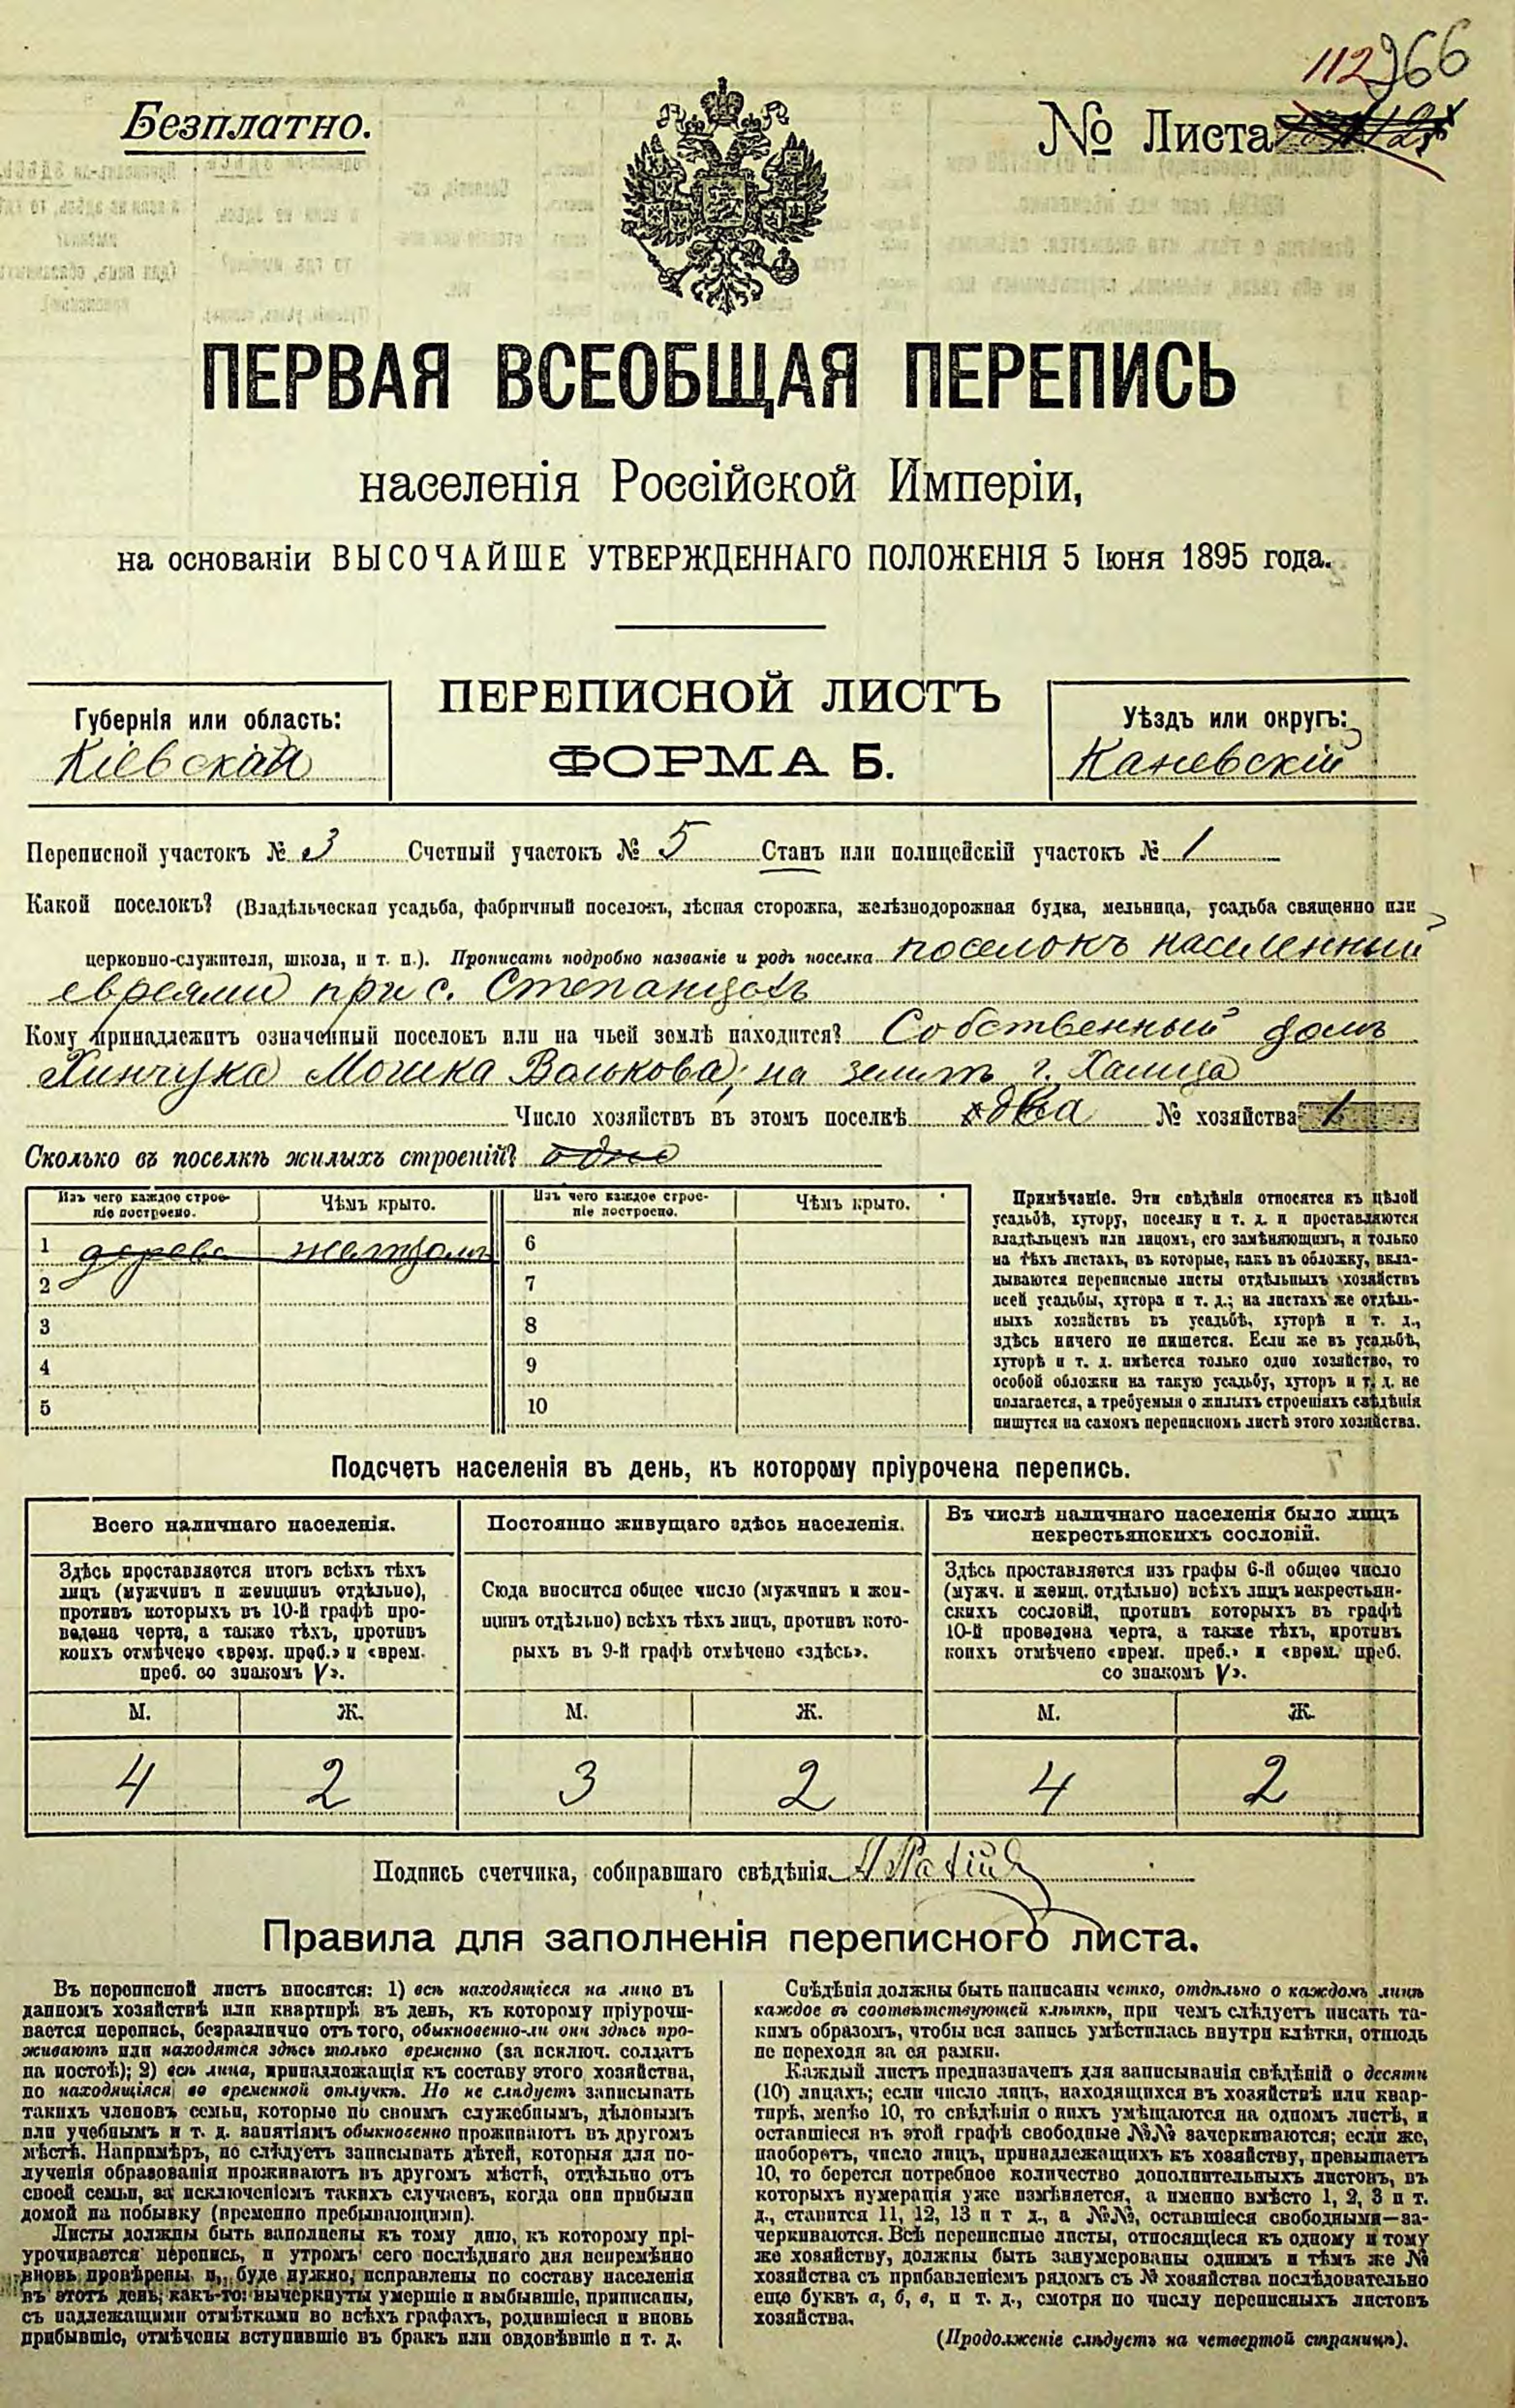 112 366
Безплатно.
№ Листа
ПЕРВАЯ ВСЕОБЩАЯ ПЕРЕПИСЬ
населенія Россійской Имперіи,
на основаніи ВЫСОЧАЙШЕ УТВЕРЖДЕННАГО ПОЛОЖЕНІЯ 5 Іюня 1895 года.
ПЕРЕПИСНОЙ ЛИСТЪ
ФОРМА Б.
Губернія или область:
Кіевская
Уѣздъ или округъ:
Каневскій
Переписной участокъ № 3 Счетный участокъ № 5 Станъ или полицейскій участокъ № 1
Какой поселокъ? (Владѣльческая усадьба, фабричный поселокъ, лѣсная сторожка, желѣзнодорожная будка, мельница, усадьба священно или
церковно-служителя, школа, и т. п.). Прописать подробно названіе и родъ поселка поселокъ населенный
евреями при с. Степанцахъ
Кому принадлежитъ означенный поселокъ или на чьей землѣ находится? Собственный домъ
Хинчука Мошка Волькова, на землѣ г.
Число хозяйствъ въ этомъ поселкѣ два № хозяйства 1
Сколько въ поселкѣ жилыхъ строеній? одно
Изъ чего каждое строеніе построено. Чѣмъ крыто. Изъ чего каждое строеніе построено. Чѣмъ крыто.
1 дерева 6
2 7
3 8
4 9
5 10
Примѣчаніе. Эти свѣдѣнія относятся къ цѣлой
усадьбѣ, хутору, поселку и т. д. и проставляются
владѣльцемъ или лицомъ, его замѣняющимъ, и только
на тѣхъ листахъ, въ которые, какъ въ обложку, вкла-
дываются переписные листы отдѣльныхъ хозяйствъ
всей усадьбы, хутора и т. д.; на листахъ же отдѣль-
ныхъ хозяйствъ въ усадьбѣ, хуторѣ и т. д.,
здѣсь ничего не пишется. Если же въ усадьбѣ,
хуторѣ и т. д. имѣется только одно хозяйство, то
особой обложки на такую усадьбу, хуторъ и т. д. не
полагается, а требуемыя о жилыхъ строеніяхъ свѣдѣнія
пишутся на самомъ переписномъ листѣ этого хозяйства.
Подсчетъ населенія въ день, къ которому пріурочена перепись.
Всего наличнаго населенія.
Здѣсь проставляется итогъ всѣхъ тѣхъ
лицъ (мужчинъ и женщинъ отдѣльно),
противъ которыхъ въ 10-й графѣ про-
ведена черта, а также тѣхъ, противъ
коихъ отмѣчено «врем. преб.» и «врем.
преб. со знакомъ V».
М. Ж.
4 2
Постоянно живущаго здѣсь населенія.
Сюда вносится общее число (мужчинъ и жен-
щинъ отдѣльно) всѣхъ тѣхъ лицъ, противъ кото-
рыхъ въ 9-й графѣ отмѣчено «здѣсь».
М. Ж.
3 2
Въ числѣ наличнаго населенія было лицъ
некрестьянскихъ сословій.
Здѣсь проставляется изъ графы 6-й общее число
(мужч. и женщ. отдѣльно) всѣхъ лицъ некрестьян-
скихъ сословій, противъ которыхъ въ графѣ
10-й проведена черта, а также тѣхъ, противъ
коихъ отмѣчено «врем. преб.» и «врем. преб.
со знакомъ V».
М. Ж.
4 2
Подпись счетчика, собиравшаго свѣдѣнія
Правила для заполненія переписного листа.
Въ переписной листъ вносятся: 1) всѣ находящіеся на лицо въ
данномъ хозяйствѣ или квартирѣ въ день, къ которому пріурочи-
вается перепись, безразлично отъ того, обыкновенно-ли они здѣсь про-
живаютъ или находятся здѣсь только временно (за исключ. солдатъ
на постоѣ); 2) всѣ лица, принадлежащія къ составу этого хозяйства,
но находящіяся во временной отлучкѣ. Но не слѣдуетъ записывать
такихъ членовъ семьи, которые по своимъ служебнымъ, дѣловымъ
или учебнымъ и т. д. занятіямъ обыкновенно проживаютъ въ другомъ
мѣстѣ. Напримѣръ, не слѣдуетъ записывать дѣтей, которыя для по-
лученія образованія проживаютъ въ другомъ мѣстѣ, отдѣльно отъ
своей семьи, за исключеніемъ такихъ случаевъ, когда они прибыли
домой на побывку (временно пребывающими).
Листы должны быть заполнены къ тому дню, къ которому прі-
урочивается перепись, и утромъ сего послѣдняго дня непремѣнно
вновь провѣрены и, буде нужно, исправлены по составу населенія
въ этотъ день, какъ-то: вычеркнуты умершіе и выбывшіе, приписаны,
съ надлежащими отмѣтками во всѣхъ графахъ, родившіеся и вновь
прибывшіе, отмѣчены вступившіе въ бракъ или овдовѣвшіе и т. д.
Свѣдѣнія должны быть написаны четко, отдѣльно о каждомъ лицѣ
каждое въ соотвѣтствующей клѣткѣ, при чемъ слѣдуетъ писать та-
кимъ образомъ, чтобы вся запись умѣстилась внутри клѣтки, отнюдь
не переходя за ея рамки.
Каждый листъ предназначенъ для записыванія свѣдѣній о десяти
(10) лицахъ; если число лицъ, находящихся въ хозяйствѣ или квар-
тирѣ, менѣе 10, то свѣдѣнія о нихъ умѣщаются на одномъ листѣ, и
оставшіеся въ этой графѣ свободные №№ зачеркиваются; если же,
наоборотъ, число лицъ, принадлежащихъ къ хозяйству, превышаетъ
10, то берется потребное количество дополнительныхъ листовъ, въ
которыхъ нумерація уже измѣняется, а именно вмѣсто 1, 2, 3 и т.
д., ставится 11, 12, 13 и т д., а №№, оставшіеся свободными—за-
черкиваются. Всѣ переписные листы, относящіеся къ одному и тому
же хозяйству, должны быть занумерованы однимъ и тѣмъ же №
хозяйства съ прибавленіемъ рядомъ съ № хозяйства послѣдовательно
еще буквъ а, б, в, и т. д., смотря по числу переписныхъ листовъ
хозяйства.
(Продолженіе слѣдуетъ на четвертой страницѣ).